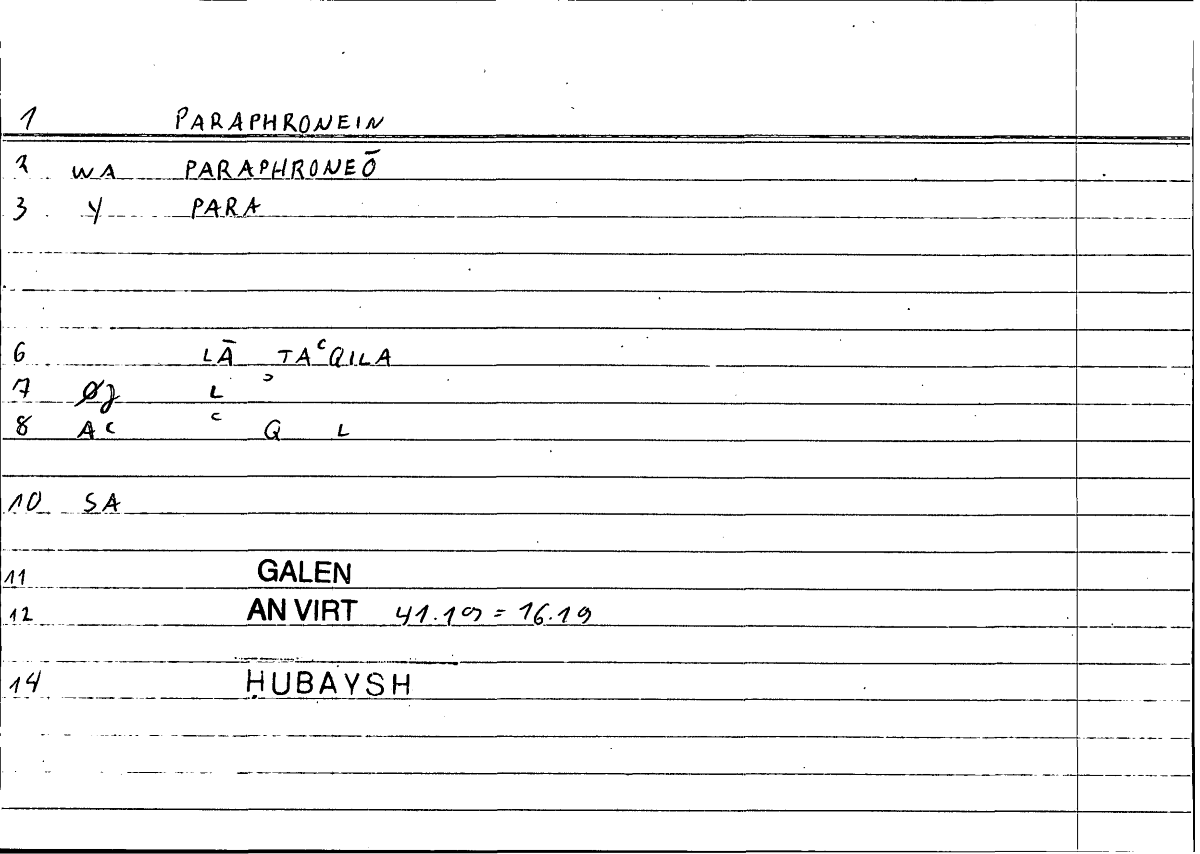 1 PARAPHRONEIN
2 WA PARAPHRONEŌ
3 Y PARA
6 LĀ TAʿQILA
7 L ʾ
8 AC ʿ Q L
10 SA
11 GALEN
12 AN VIRT 41.19 = 16.19
14 ḤUBAYSH